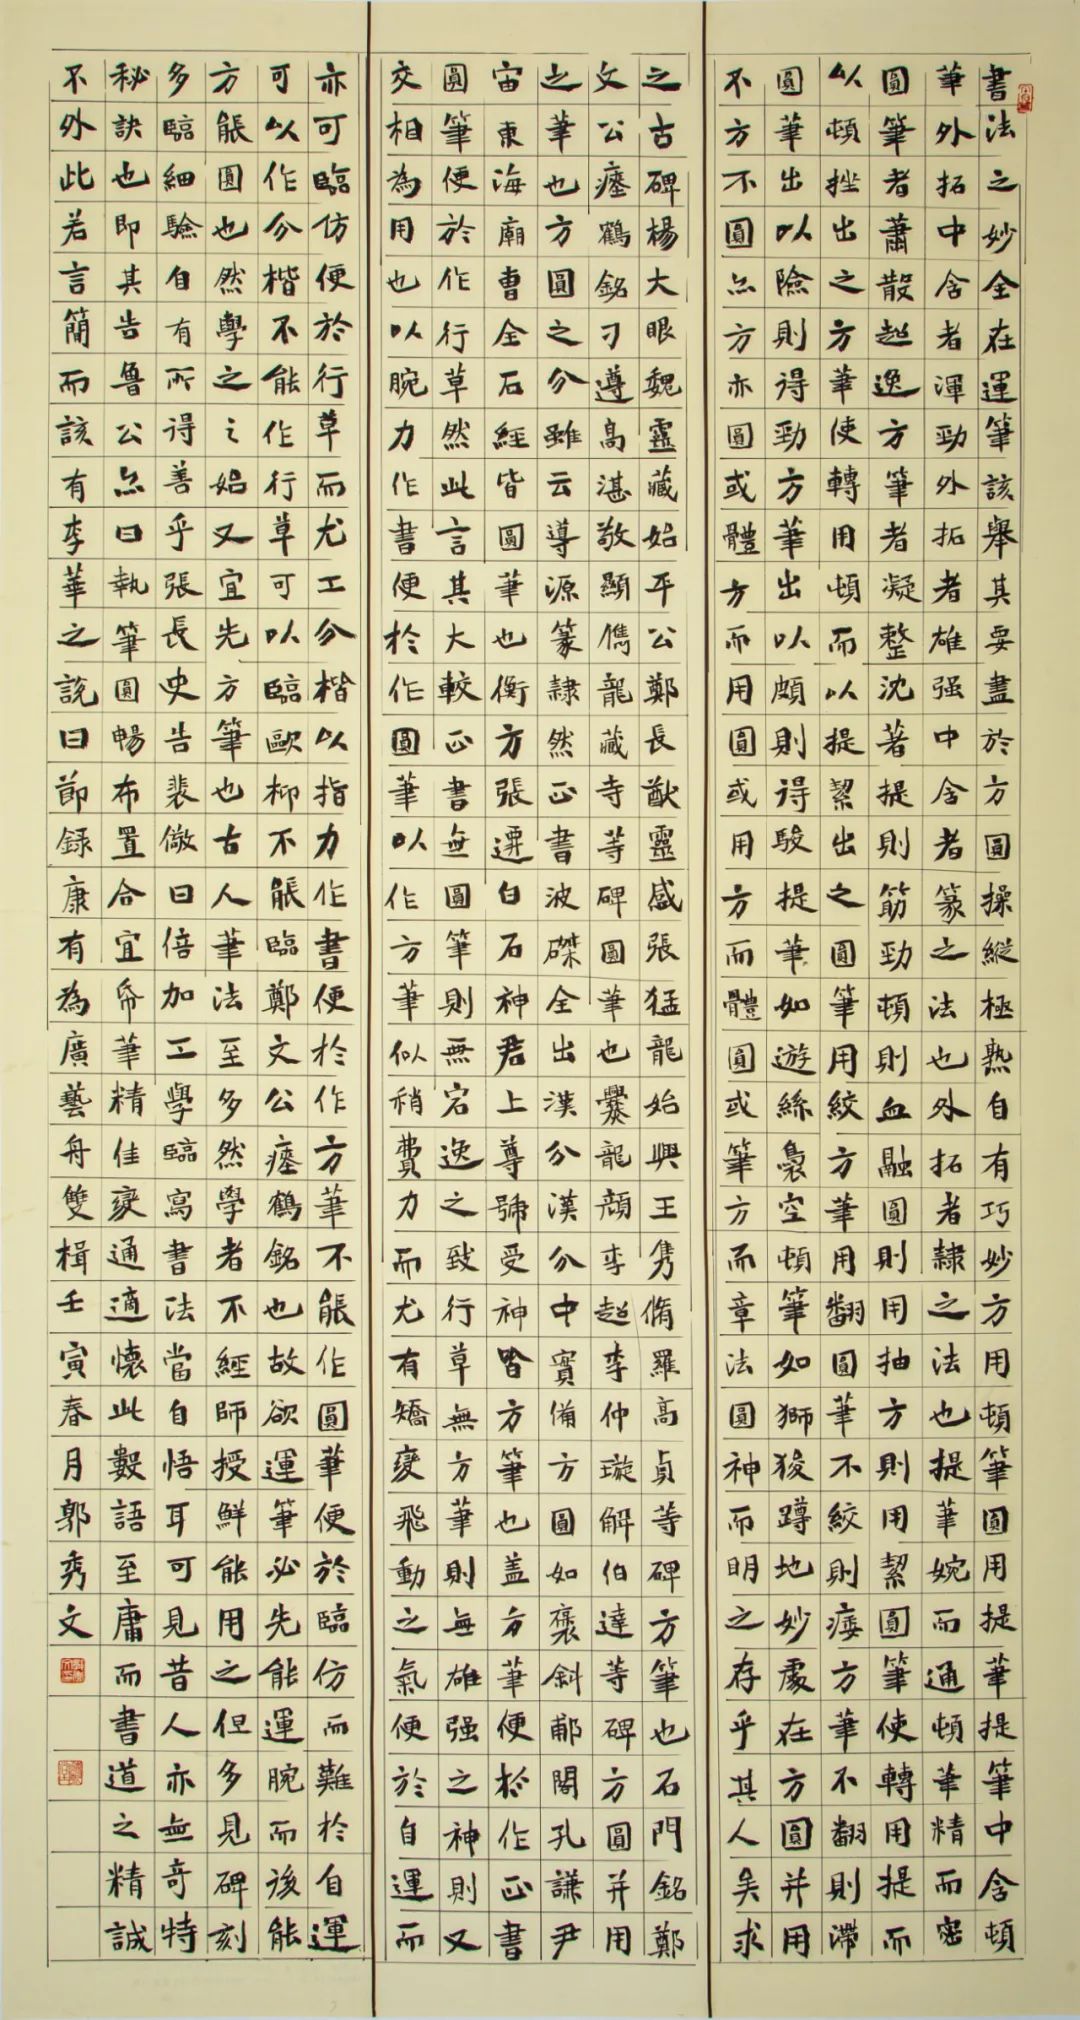 書法之妙全在運筆該舉其要盡於方圓操縱極熟自有巧妙方用頓筆圓用提筆提筆中含頓
筆外拓中含者渾勁外拓者雄强中含者篆之法也外拓者隸之法也提筆婉而通頓筆精而密
圓筆者蕭散超逸方筆者凝整沈著提則筋勁頓則血融圓則用抽方則用絜圓筆使轉用提而
以頓挫出之方筆使轉用頓而以提絜出之圓筆用絞方筆用翻圓筆不絞則痿方筆不翻則滯
圓筆出以險則得勁方筆出以頗則得駿提筆如遊絲裊空頓筆如獅狻蹲地妙處在方圓并用
不方不圓亦方亦圓或體方而用圓或用方而體圓或筆方而章法圓神而明之存乎其人矣求
之古碑楊大眼魏靈藏始平公鄭長猷靈感張猛龍始興王雋脩羅高貞等碑方筆也石門銘鄭
文公瘞鶴銘刁遵高湛敬顯儁龍藏寺等碑圓筆也爨龍顏李超李仲璇解伯達等碑方圓并用
之筆也方圓之分雖云導源篆隸然正書波磔全出漢分漢分中實備方圓如褒斜郙閣孔謙尹
宙東海廟曹全石經皆圓筆也衡方張遷白石神君上尊號受神皆方筆也盖方筆便於作正書
圓筆便於作行草然此言其大較正書無圓筆則無宕逸之致行草無方筆則無雄强之神則又
交相為用也以腕力作書便於作圓筆以作方筆似稍費力而尤有矯變飛動之氣便於自運而
亦可臨仿便於行草而尤工分楷以指力作書便於作方筆不能作圓筆便於臨仿而難於自運
可以作分楷不能作行草可以臨歐柳不能臨鄭文公瘞鶴銘也故欲運筆必先能運腕而後能
方能圓也然學之之始又宜先方筆也古人筆法至多然學者不經師授鮮能用之但多見碑刻
多臨細驗自有所得善乎張長史告裴儆曰倍加工學臨寫書法當自悟耳可見昔人亦無奇特
秘訣也即其告魯公亦曰執筆圓暢布置合宜帋筆精佳變通適懷此數語至庸而書道之精誠
不外此若言簡而該有李華之說曰節録康有為廣藝舟雙楫壬寅春月郭秀文